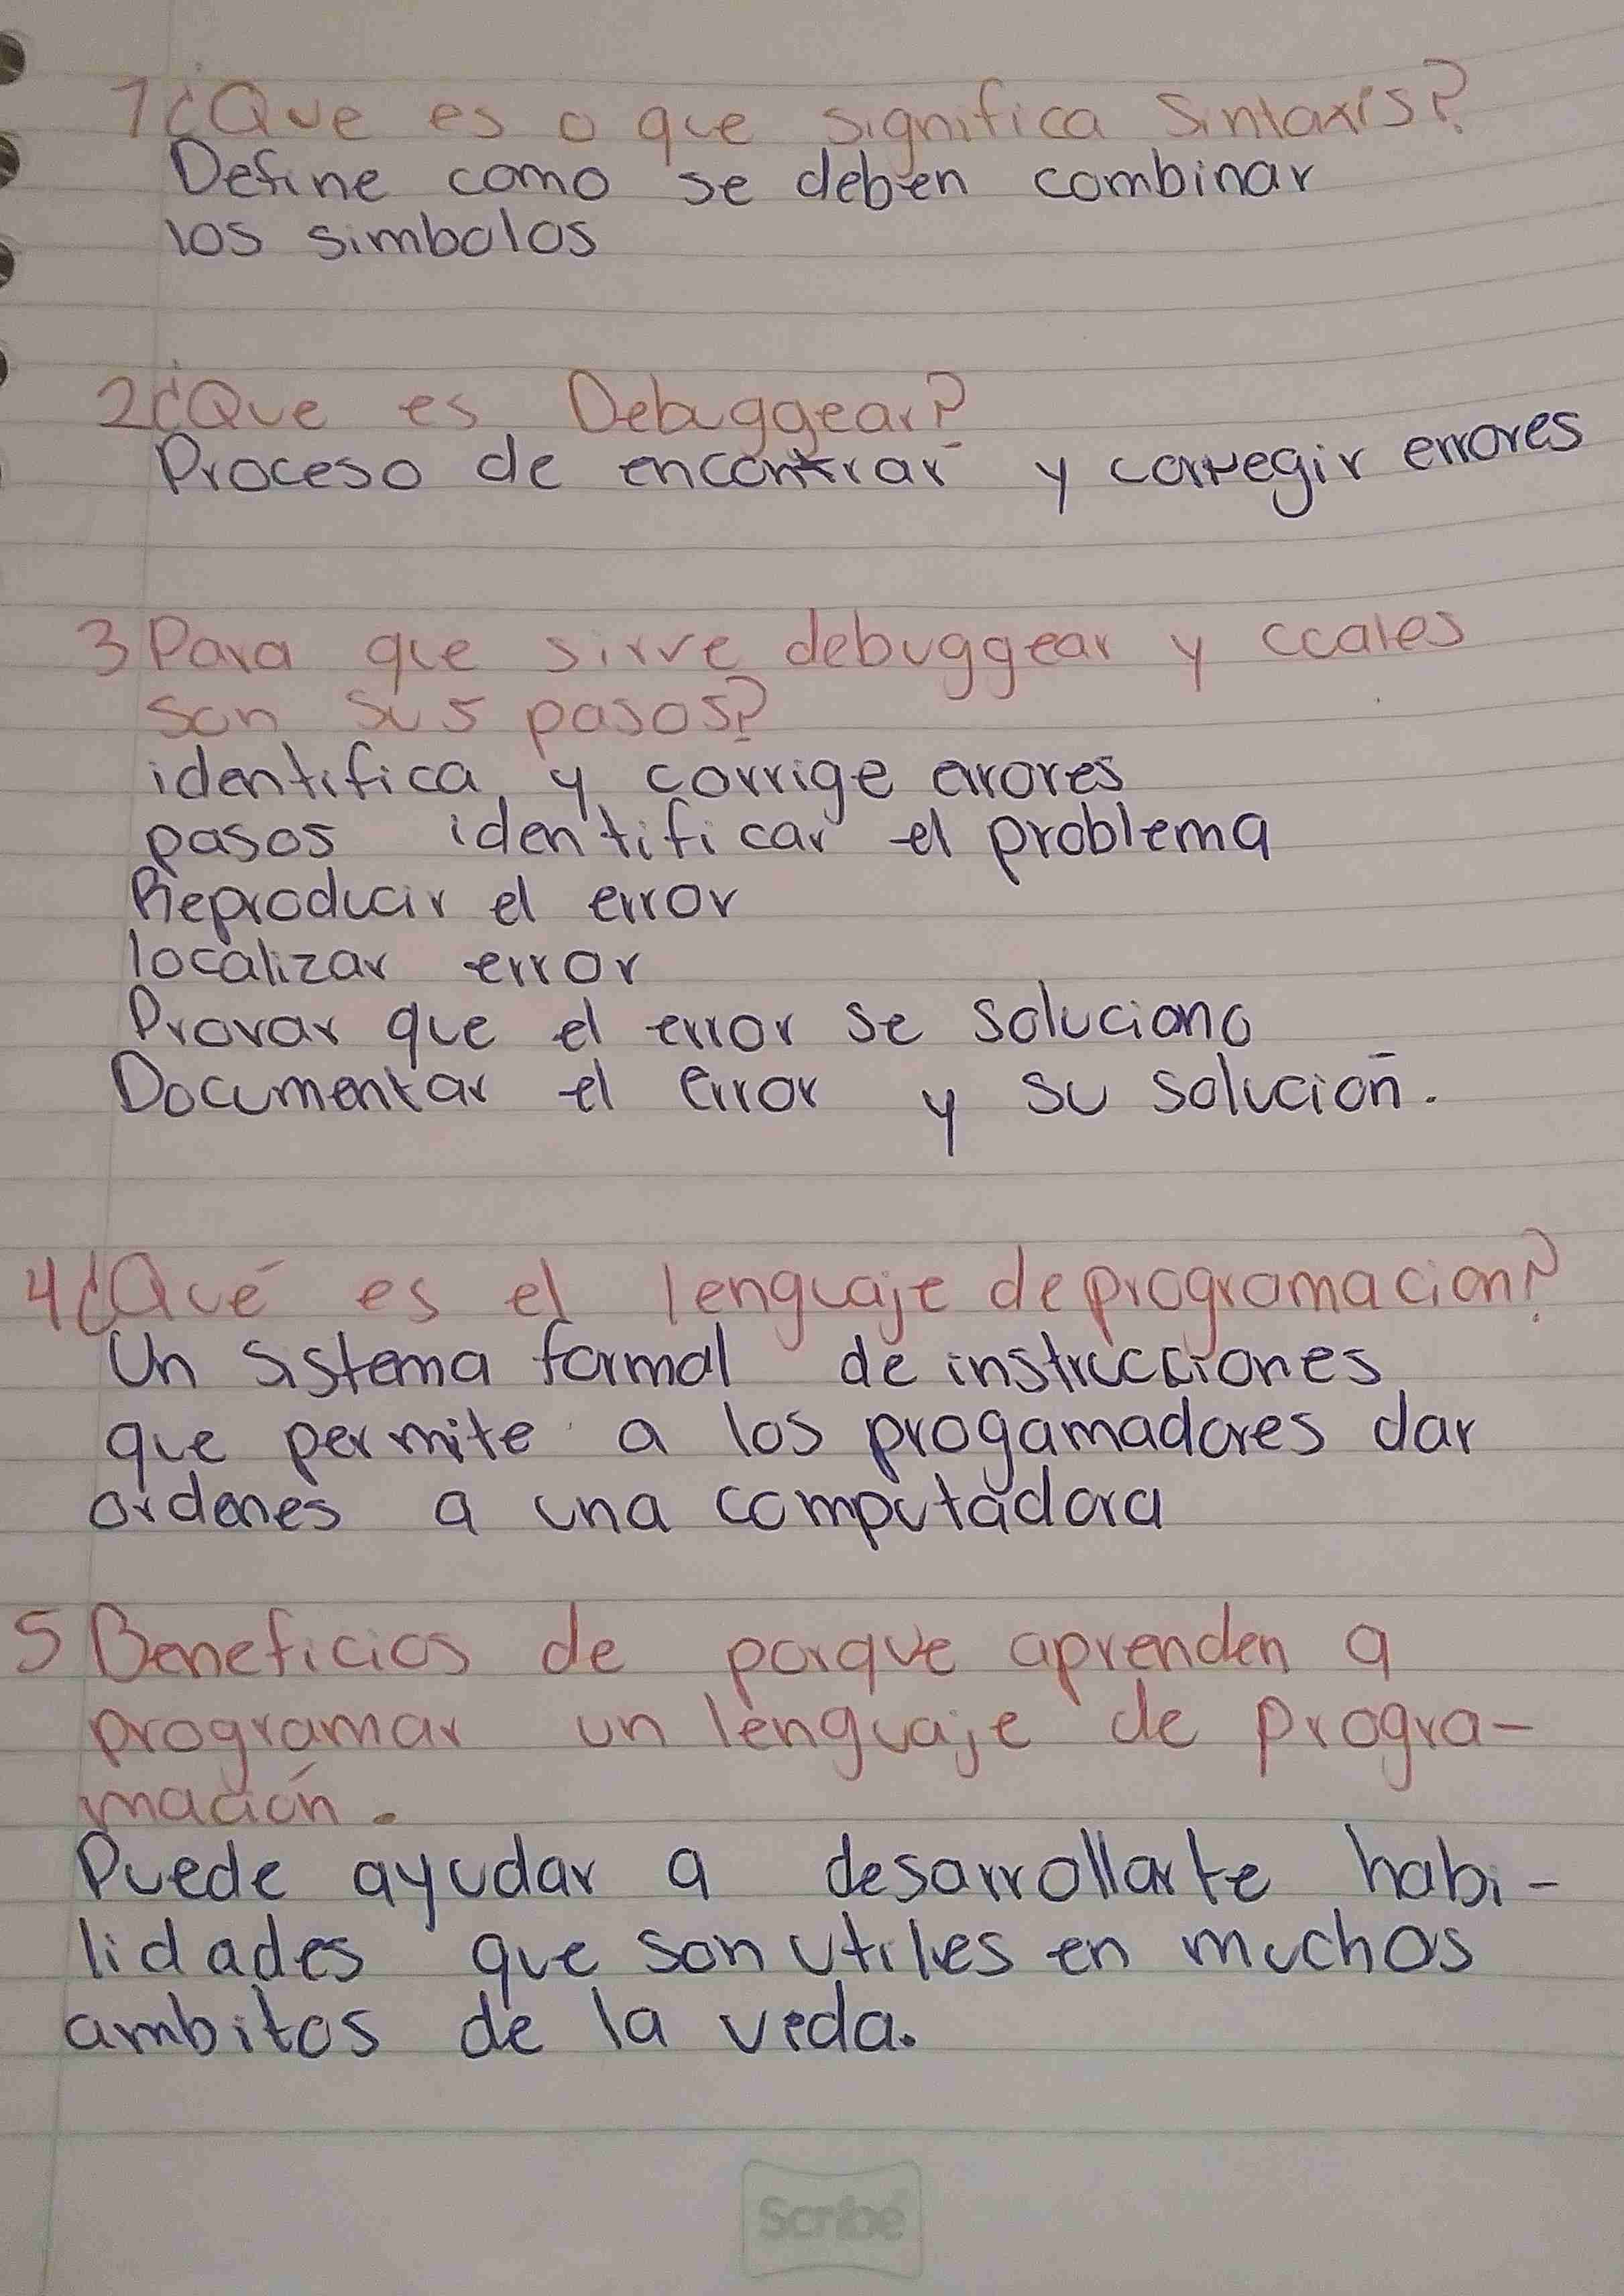 1 ¿Que es o que significa Sintaxis?
Define como se deben combinar
los simbolos
2 ¿Que es Debuggear?
Proceso de encontrar y corregir errores
3 Para que sirve debuggear y cuales
son sus pasos?
identifica y corrige errores
pasos identificar el problema
Reproducir el error
localizar error
Provar que el error se soluciono
Documentar el error y su solución.
4 ¿Qué es el lenguaje de programacion?
Un sistema formal de instrucciones
que permite a los progamadores dar
ordenes a una computadora
5 Beneficios de porque aprenden a
programar un lenguaje de progra-
mación.
Puede ayudar a desarrollarte habi-
lidades que son utiles en muchos
ambitos de la vida.
Scribe